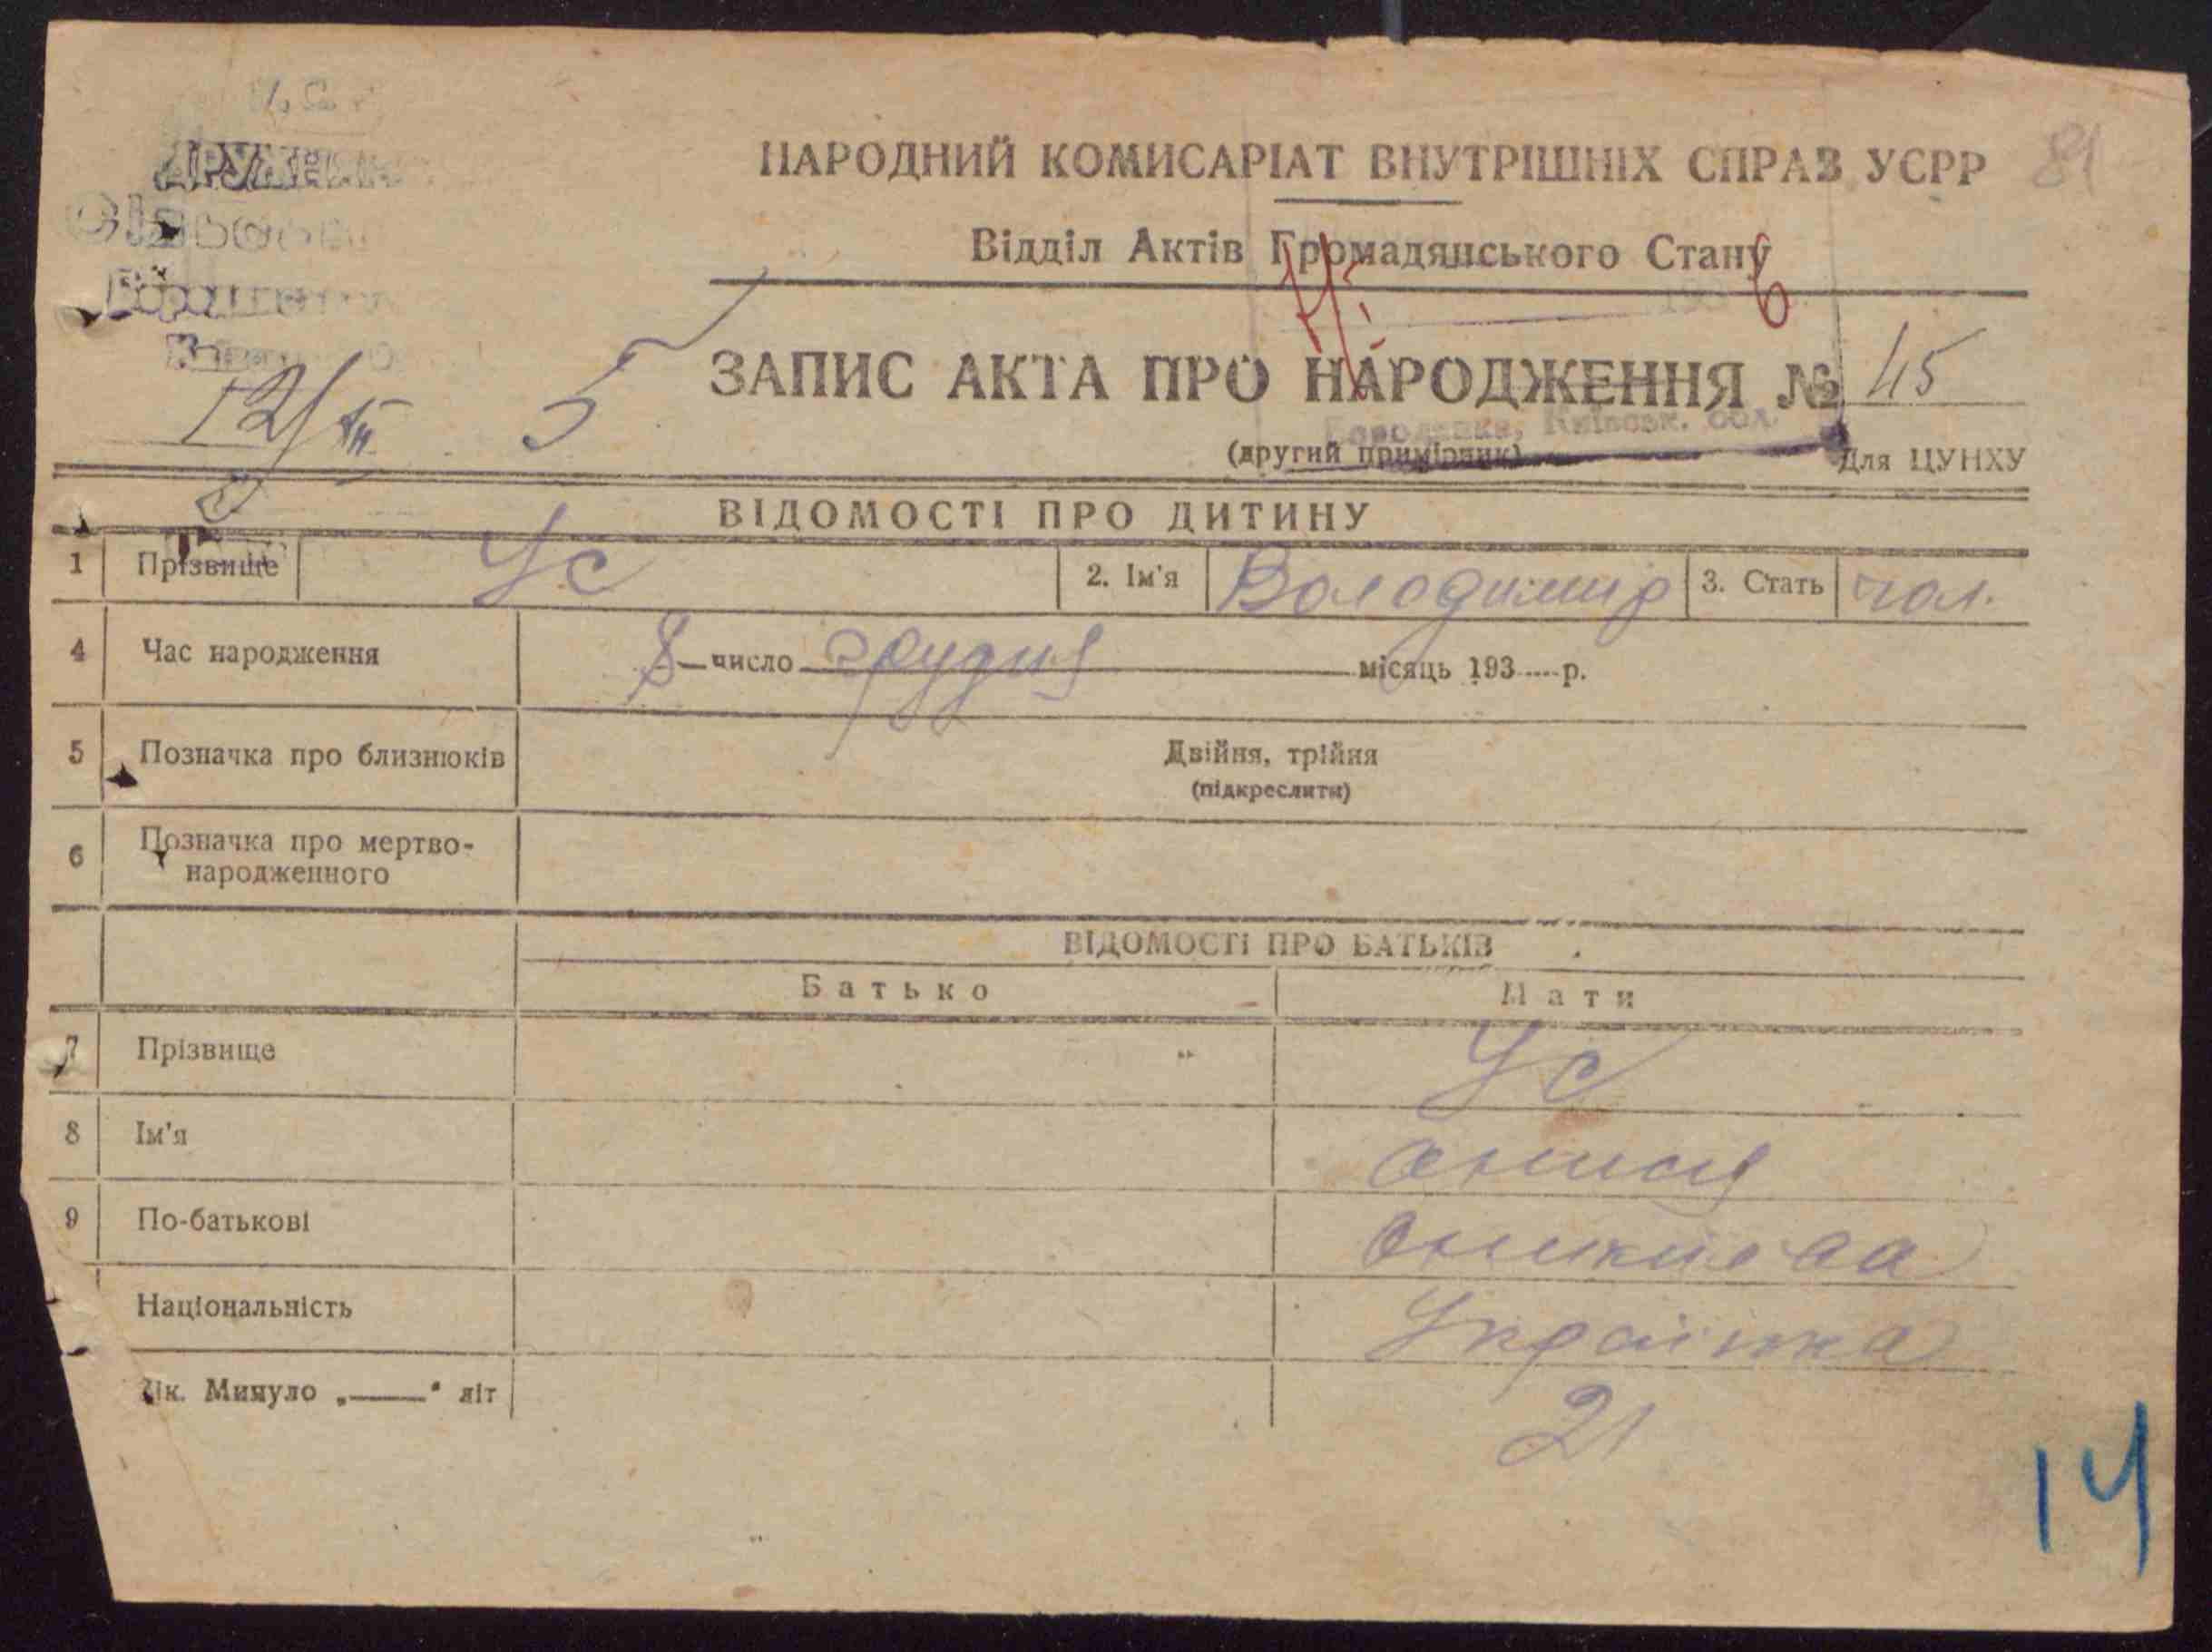 НАРОДНИЙ КОМИСАРІАТ ВНУТРІШНІХ СПРАВ УСРР 81
Відділ Актів Громадянського Стану
ЗАПИС АКТА ПРО НАРОДЖЕННЯ № 45
12/XII 5
Бородянка, Київськ. обл.
(другий примірник) Для ЦУНХУ
ВІДОМОСТІ ПРО ДИТИНУ
1 Прізвище Ус 2. Ім'я Володимир 3. Стать чол.
4 Час народження 8 число грудня місяць 193 р.
5 Позначка про близнюків Двійня, трійня
(підкреслити)
6 Позначка про мертво-
народженного
ВІДОМОСТІ ПРО БАТЬКІВ
Батько Мати
7 Прізвище Ус
8 Ім'я Онися
9 По-батькові
Національність Українка
Вік. Минуло „ " літ 21
14